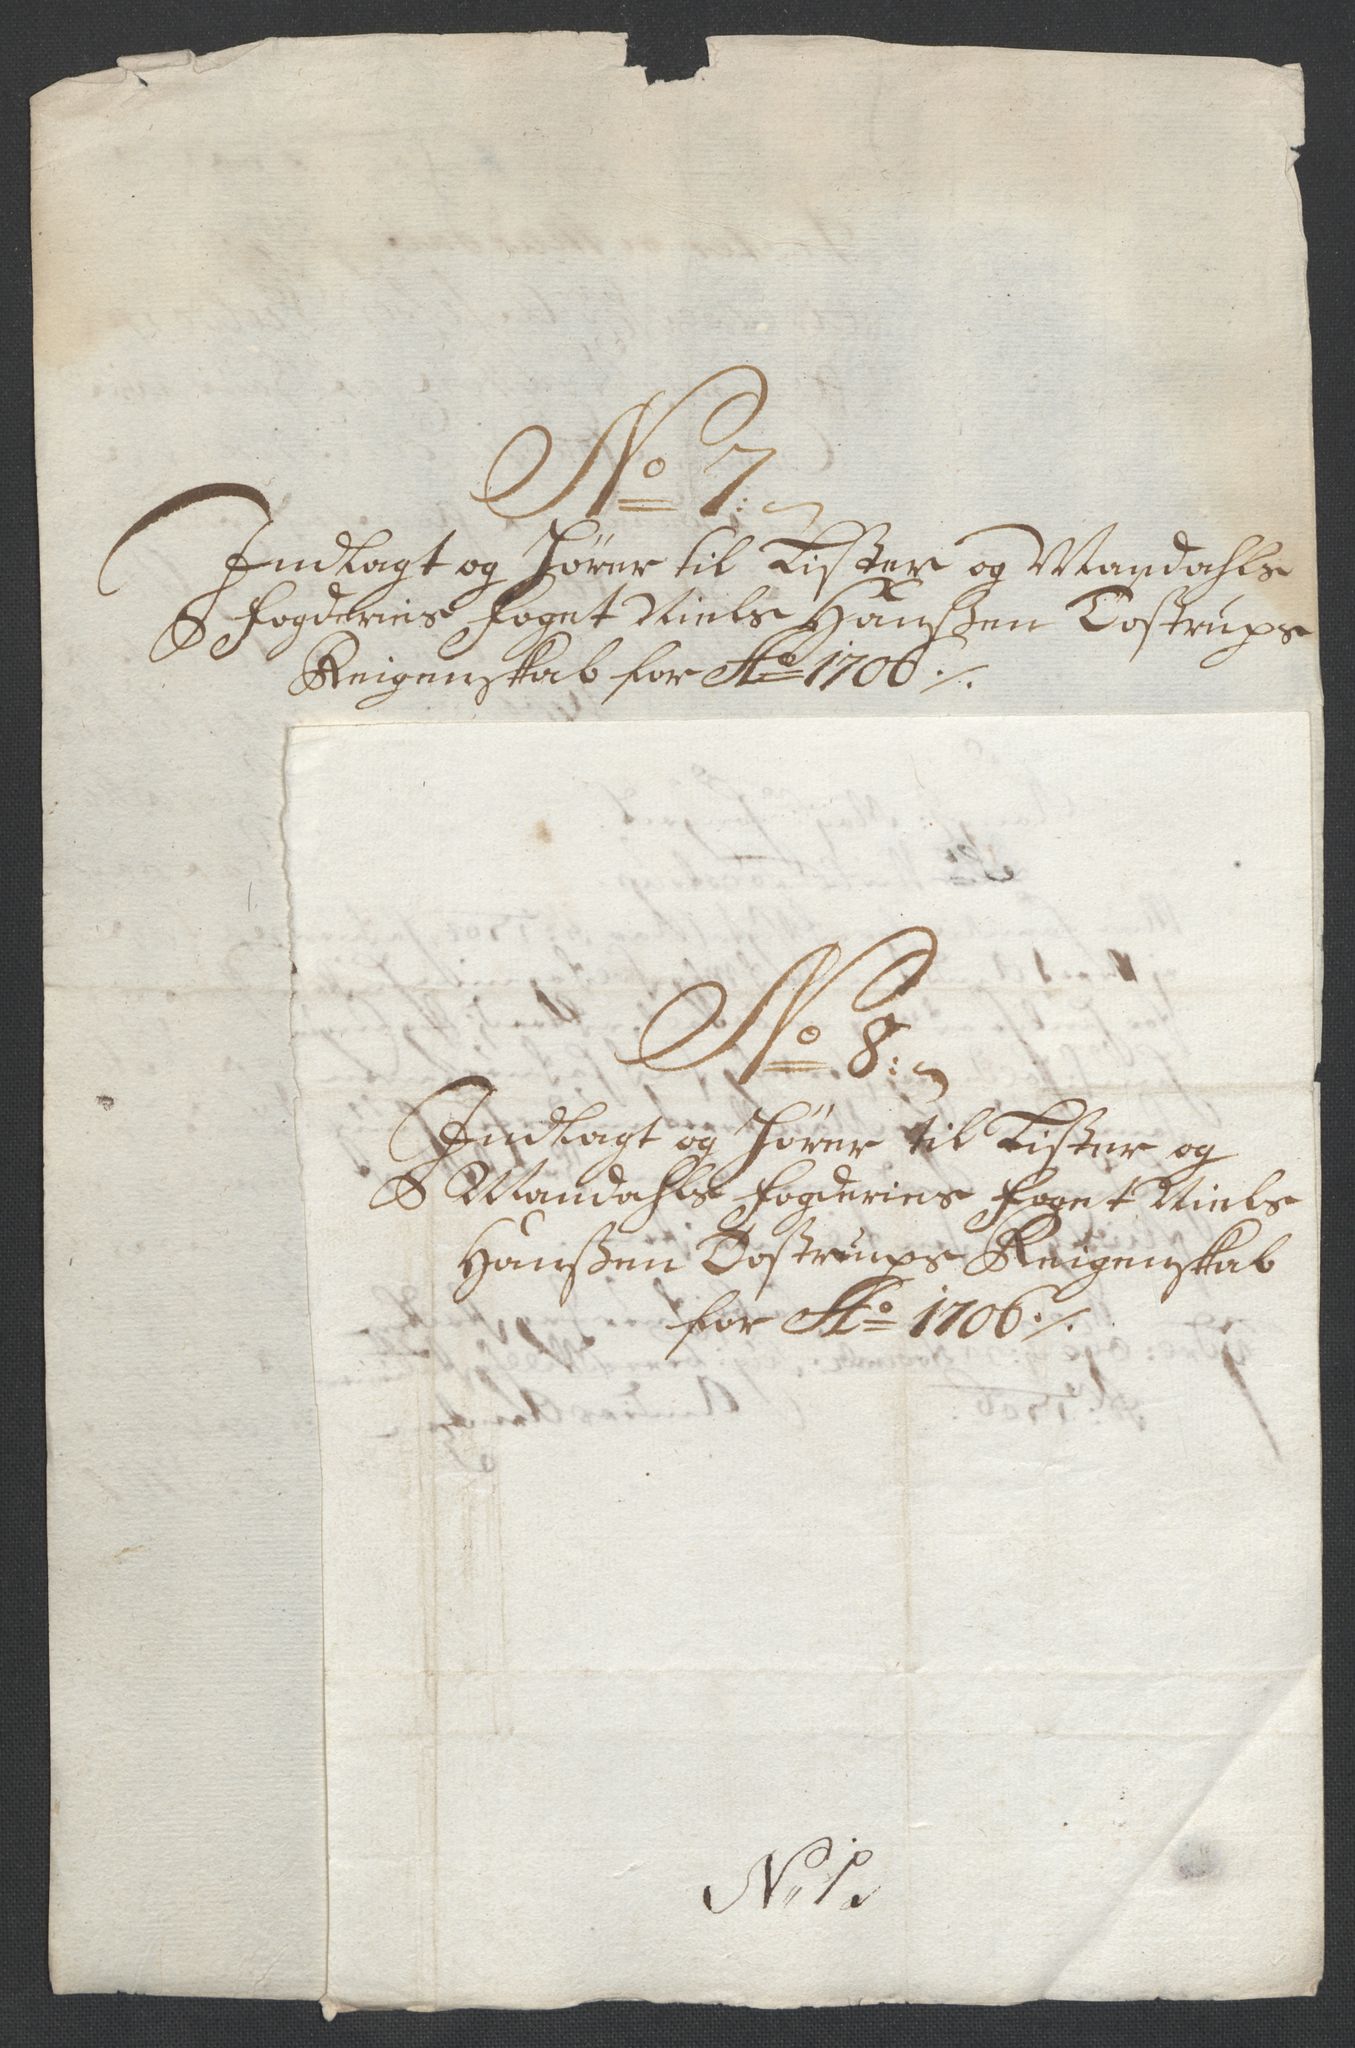 No 7:
Indlagt og hører til Lister og Mandahls
Fogderies Foget Niels Hanßen Tostrups
Reigenskab for Ao 1706 ./.
No 8:
Indlagt og hører til Lister og
Mandahls Fogderies Foget Niels
Hanßen Tostrups Reigenskab
for Ao 1706 ./.
No 1.